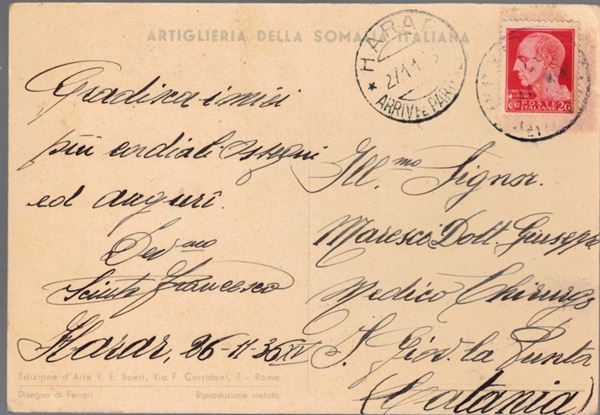 ARTIGLIERIA DELLA SOMALIA ITALIANA
HARAR
27.1
ARRIVI E PAR
POSTE
ITALIANE
CENT 20
Gradisca i miei
più cordiali ossequi
ed auguri.
Dev.mo
Sciuto Francesco
Harar, 26-11-36 XV
Ill.mo Signor.
Maresca Dott. Giuseppe
Medico Chirurgo
S. Giov. la Punta
(Catania)
Edizione d'Arte V. E. Boeri, Via F. Corridoni, 7 - Roma
Disegno di Ferrari
Riproduzione vietata